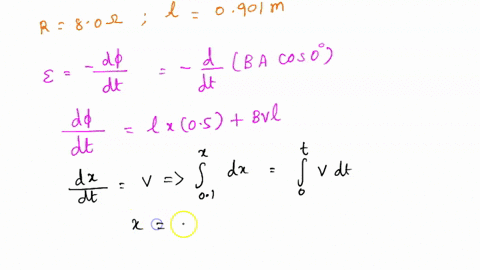 R = 8.0 Ω ; l = 0.901 m
ε = - dϕ/dt = - d/dt (BA cos 0°)
dϕ/dt = l x (0.5) + Bvl
dx/dt = v => ∫_{0.1}^{x} dx = ∫_{0}^{t} v dt
x =